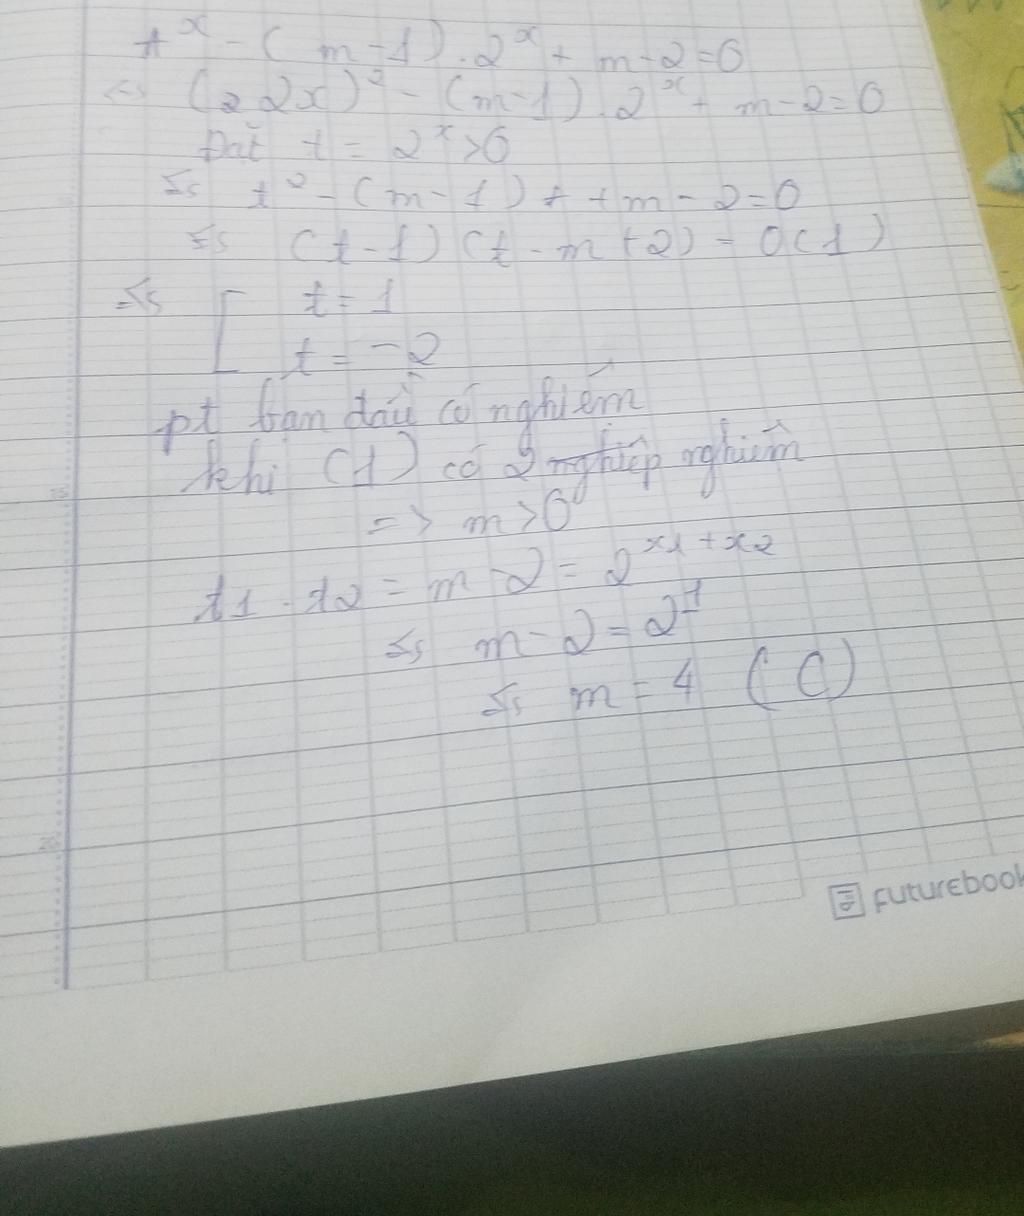 4^x - (m-1).2^x + m-2=0
<=> (2 2x)^2 - (m-1).2^x + m-2=0
Đặt t = 2^x >0
<=> t^2 - (m-1)t + m-2=0
<=> (t-1)(t-m+2) = 0 (1)
<=> [ t=1
t=-2
pt ban đầu có nghiệm
khi (1) có 2 nghiệp nghiệm
=> m>0
t1.t2 = m-2 = 2^x1+x2
<=> m-2=2^1
<=> m=4 (C)
FUTUREBOOK